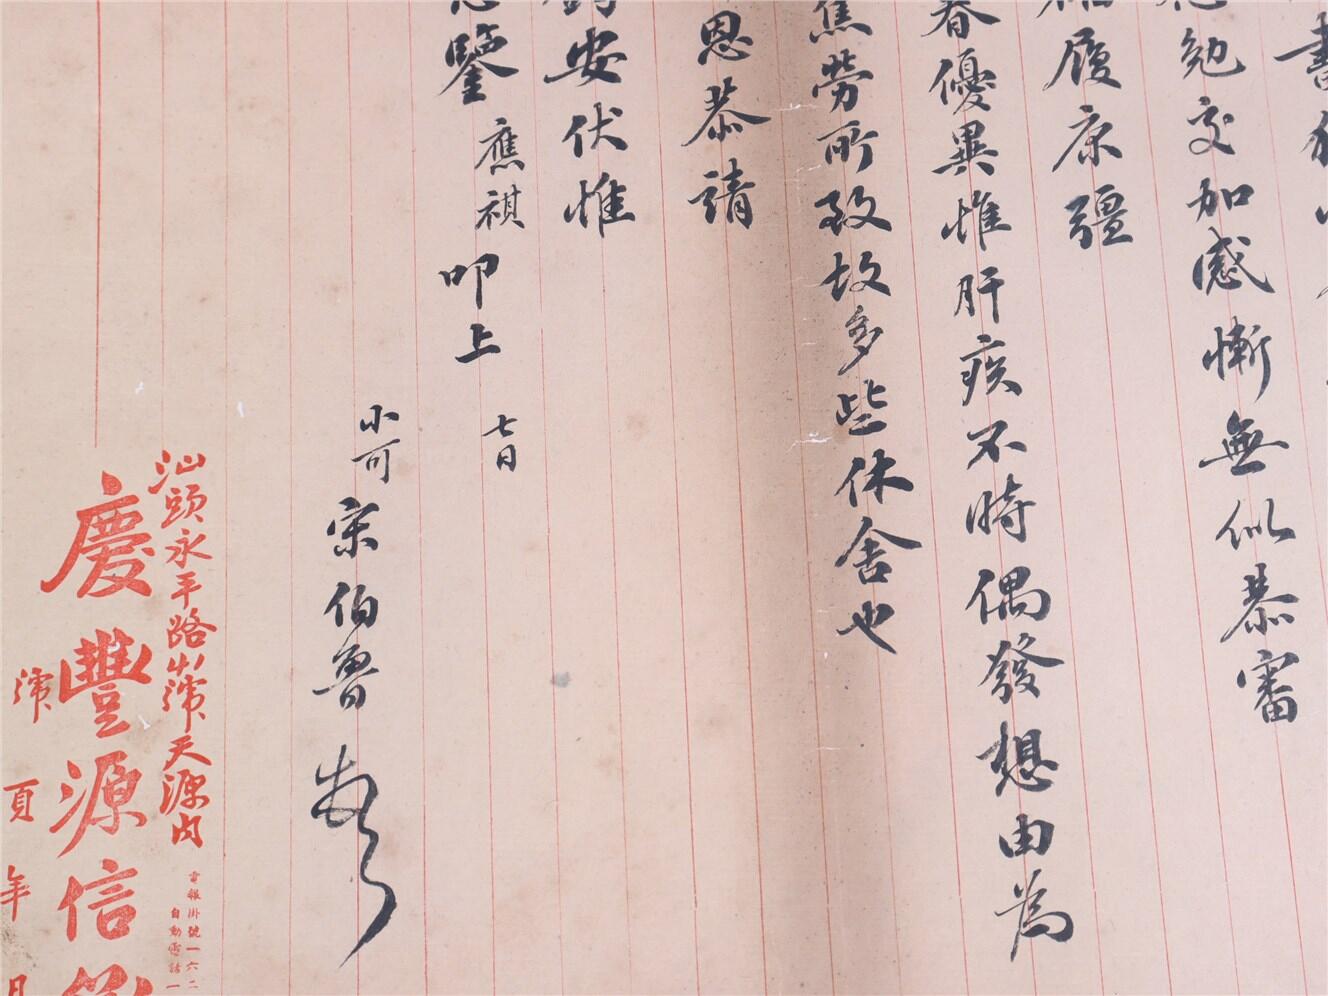 書
勉交加感慚無似恭審
履康彊
春優異惟肝疾不時偶發想由為
焦勞所致故多些休舍也
恩恭請
安伏惟
鑒 應祺 叩上 七日
小可宋伯魯
汕頭永平路 天源內
慶豐源信
電報掛號一六二
自動電話一
頁 年 月